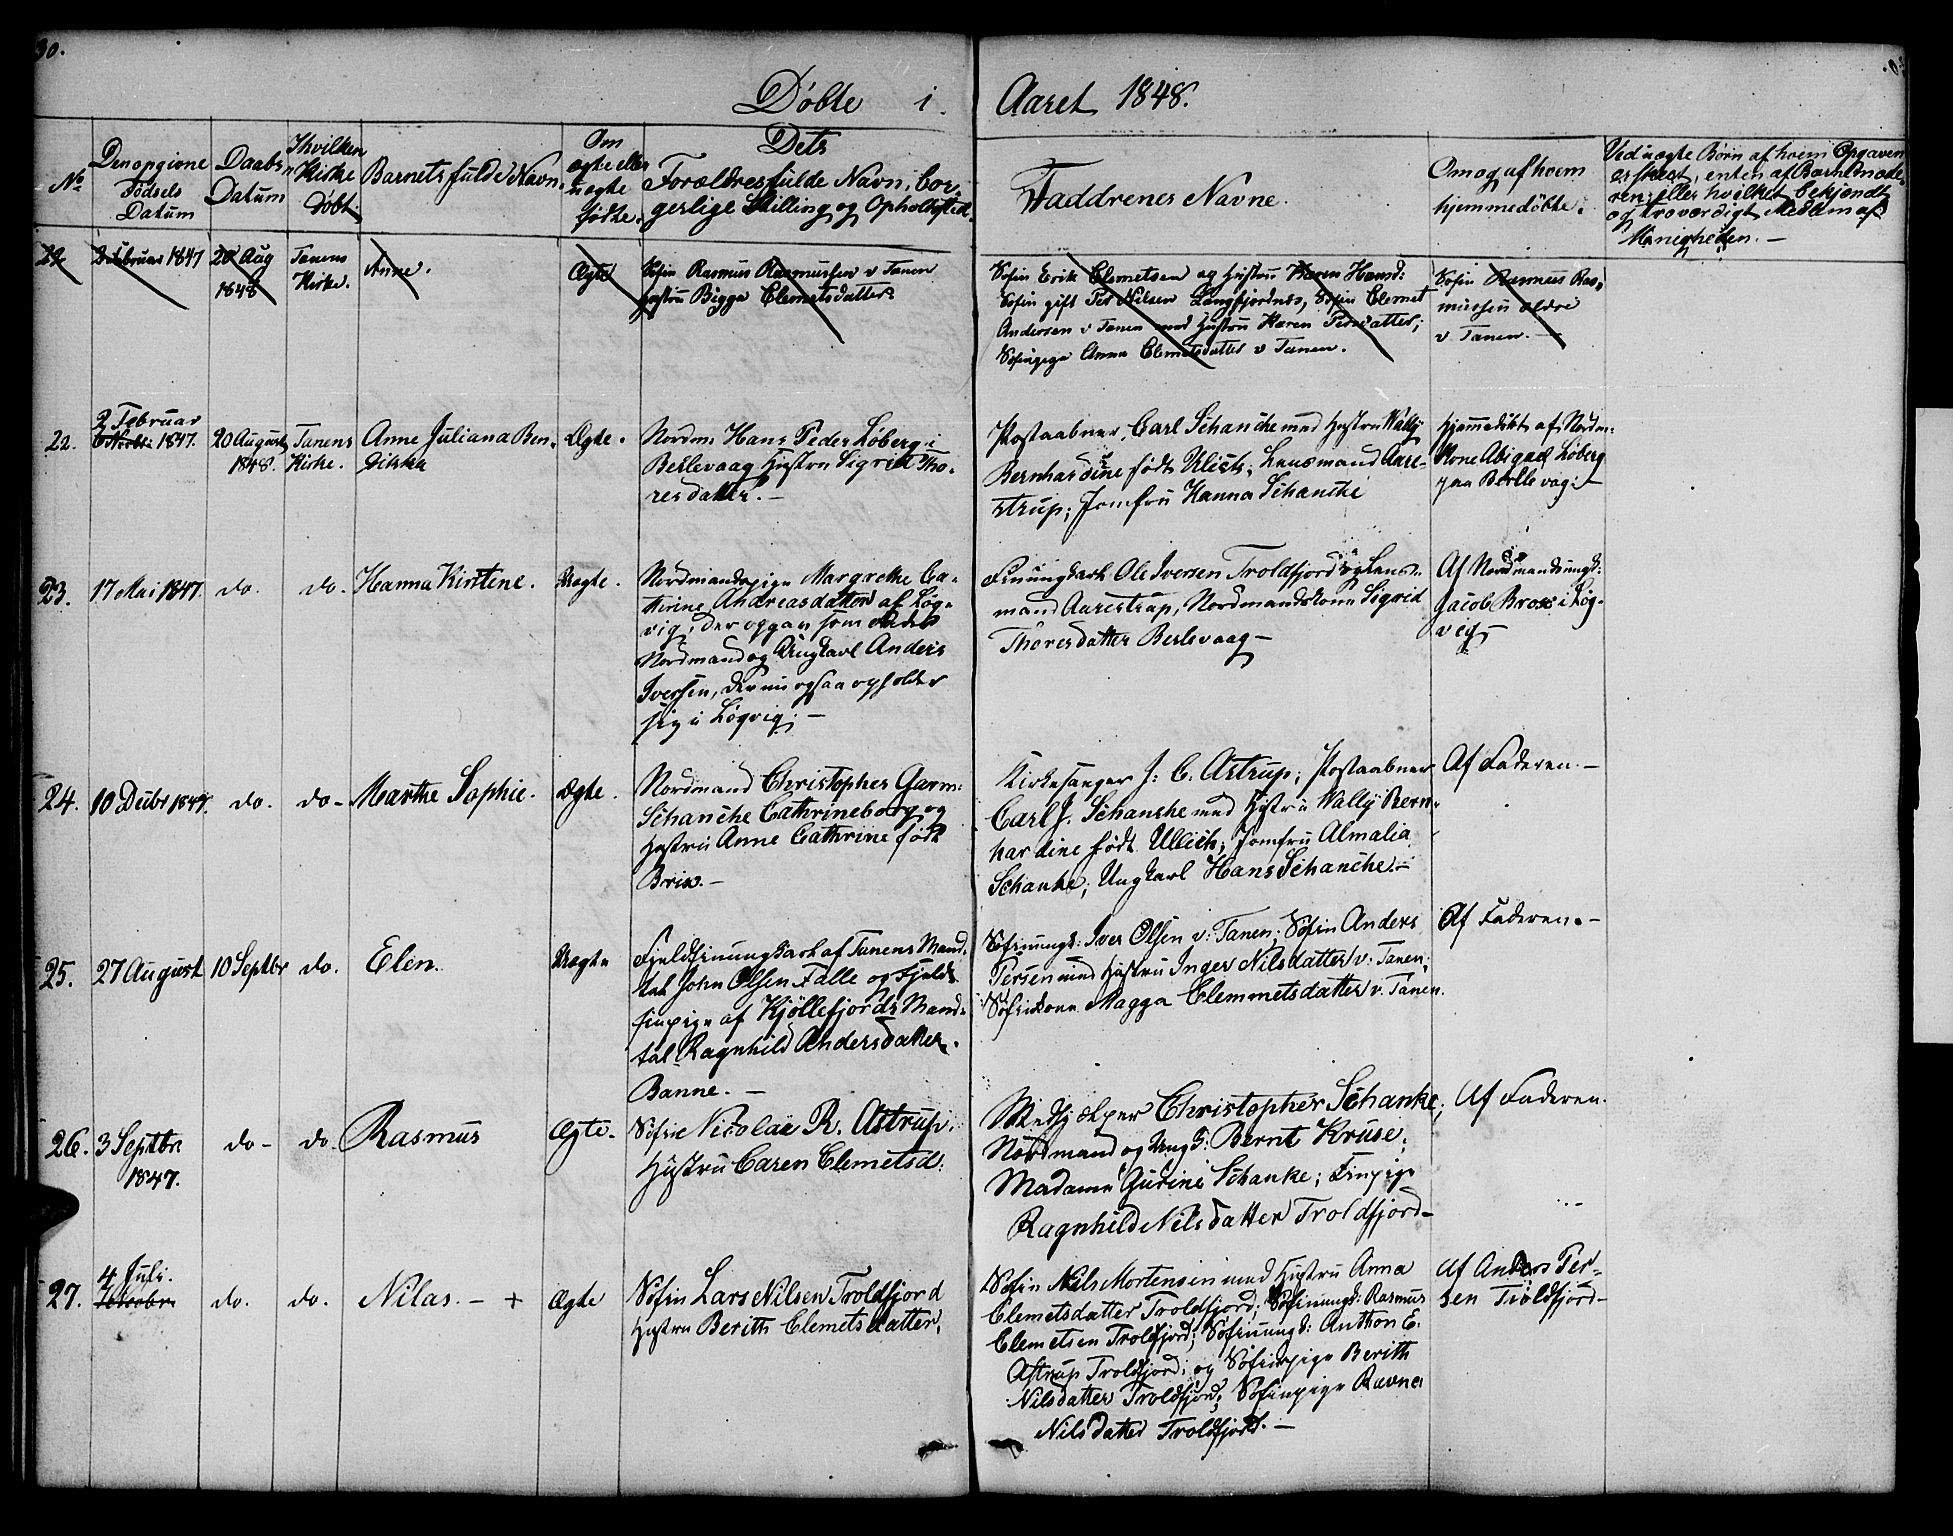 30.
Døbte i Aaret 1848.
No
Den opgivne Fødsels Datum
Daabs Datum
I hvilken Kirke Døbt
Barnets fulde Navn.
Om ægte eller uægte fødte.
Dets Forældres fulde Navn, borgerlige Stilling og Opholdsted.
Faddrenes Navne.
Om og af hvem hjemmedøbte.
Ved uægte Børn af hvem Opgaven er skeet, enten af Barnemoderen eller hvilket bekjendt og troværdigt Medlem af Menigheden. —
22
1847
20 Aug 1848
Tanens Kirke.
Anne.
Ægte
Søfin Rasmus Rasmussen v Tanen
Hustru Bigga Clemetsdatter
Søfin Erik Clemetsen og Hustru Karen Hansd:
Søfin gift Per Nilsen Langfjordnes, Søfin Clemet
Andersen v Tanen med Hustru Karen Persdatter;
Søfinpige Anna Clemetsdatter v Tanen.
Søfin Rasmus Ras-
mussen ældre
v Tanen. —
22.
2 Februar
1847.
20 August
1848.
Tanens
Kirke.
Anne Juliana Ben-
dikka
Ægte.
Nordm: Hans Peder Løberg i
Berlevaag Hustru Sigrid Tho-
resdatter. —
Postaabner, Carl Schanche med Hustru Wally
Bernhardine født Ulich; Lensmand Aare-
strup; Jomfru Hanna Schanche
Hjemmedøbt af Nordm:
Kone Abigael Løberg
paa Berlevog: —
23.
17 Mai 1847.
do.
do.
Hanna Kirstene.
Uægte.
Nordmandspige Margrethe Ca-
thrine Andreasdatter af Løg-
vig, der opgav som Fader
Nordmand og Ungkarl Anders
Iversen, der nu ogsaa opholder
sig i Løgvig; —
Finungkarl Ole Iversen Troldfjord og Lens-
mand Aarestrup, Nordmandskone Sigrid
Thoresdatter Berlevaag —
Af Nordmandsungk:
Jacob Brox i Løg-
vig —
24.
10 Decbr 1847.
do.
do —
Marthe Sophie.
Ægte.
Nordmand Christopher Garm:
Schanche Cathrineborg og
Hustru Anne Cathrine født
Brix. —
Kirkesanger J: C. Astrup; Postaabner
Carl J. Schanske med Hustru Wally Bern-
hardine født Ullich; Jomfru Almalia
Schanke; Ungkarl Hans Schanche. —
Af Faderen. —
25.
27 August
10 Septbr
do.
Elen.
Uægte
Fjeldfinungkarl af Tanens Mand-
tal John Olsen Falle og Fjeld-
finpige af Kjøllefjords Mand-
tal Ragnhild Andersdatter
Banne. —
Søfinungk: Iver Olsen v: Tanen; Søfin Anders
Persen med Hustru Inger Nilsdatter v: Tanen;
Søfinkone Magga Clemmetsdatter v. Tanen.
Af Faderen. —
26.
3 Septbr
1847.
do —
do.
Rasmus
Ægte.
Søfin Nicolai R. Astrup.
Hustru Caren Clemetsd:
Medhjælper Christopher Schanke;
Nordmand og Ungk: Bernt Kruse;
Madame Gurine Schanke; Finpige
Ragnhild Nilsdatter Troldfjord —
Af Faderen.
27.
4 Juli.
do.
do.
Nilas. — +
Ægte
Søfin Lars Nilsen Troldfjord
Hustru Berith Clemetsdatter.
Søfin Nils Mortensen med Hustru Anna
Clemetsdatter Troldfjord; Søfinungk: Rasmus
Clemetsen Troldfjord; Søfinungk: Anthon E.
Astrup Troldfjord; og Søfinpige Berith
Nilsdatter Troldfjord; Søfinpige Ravna
Nilsdatter Troldfjord. —
Af Anders Per-
sen Troldfjord —